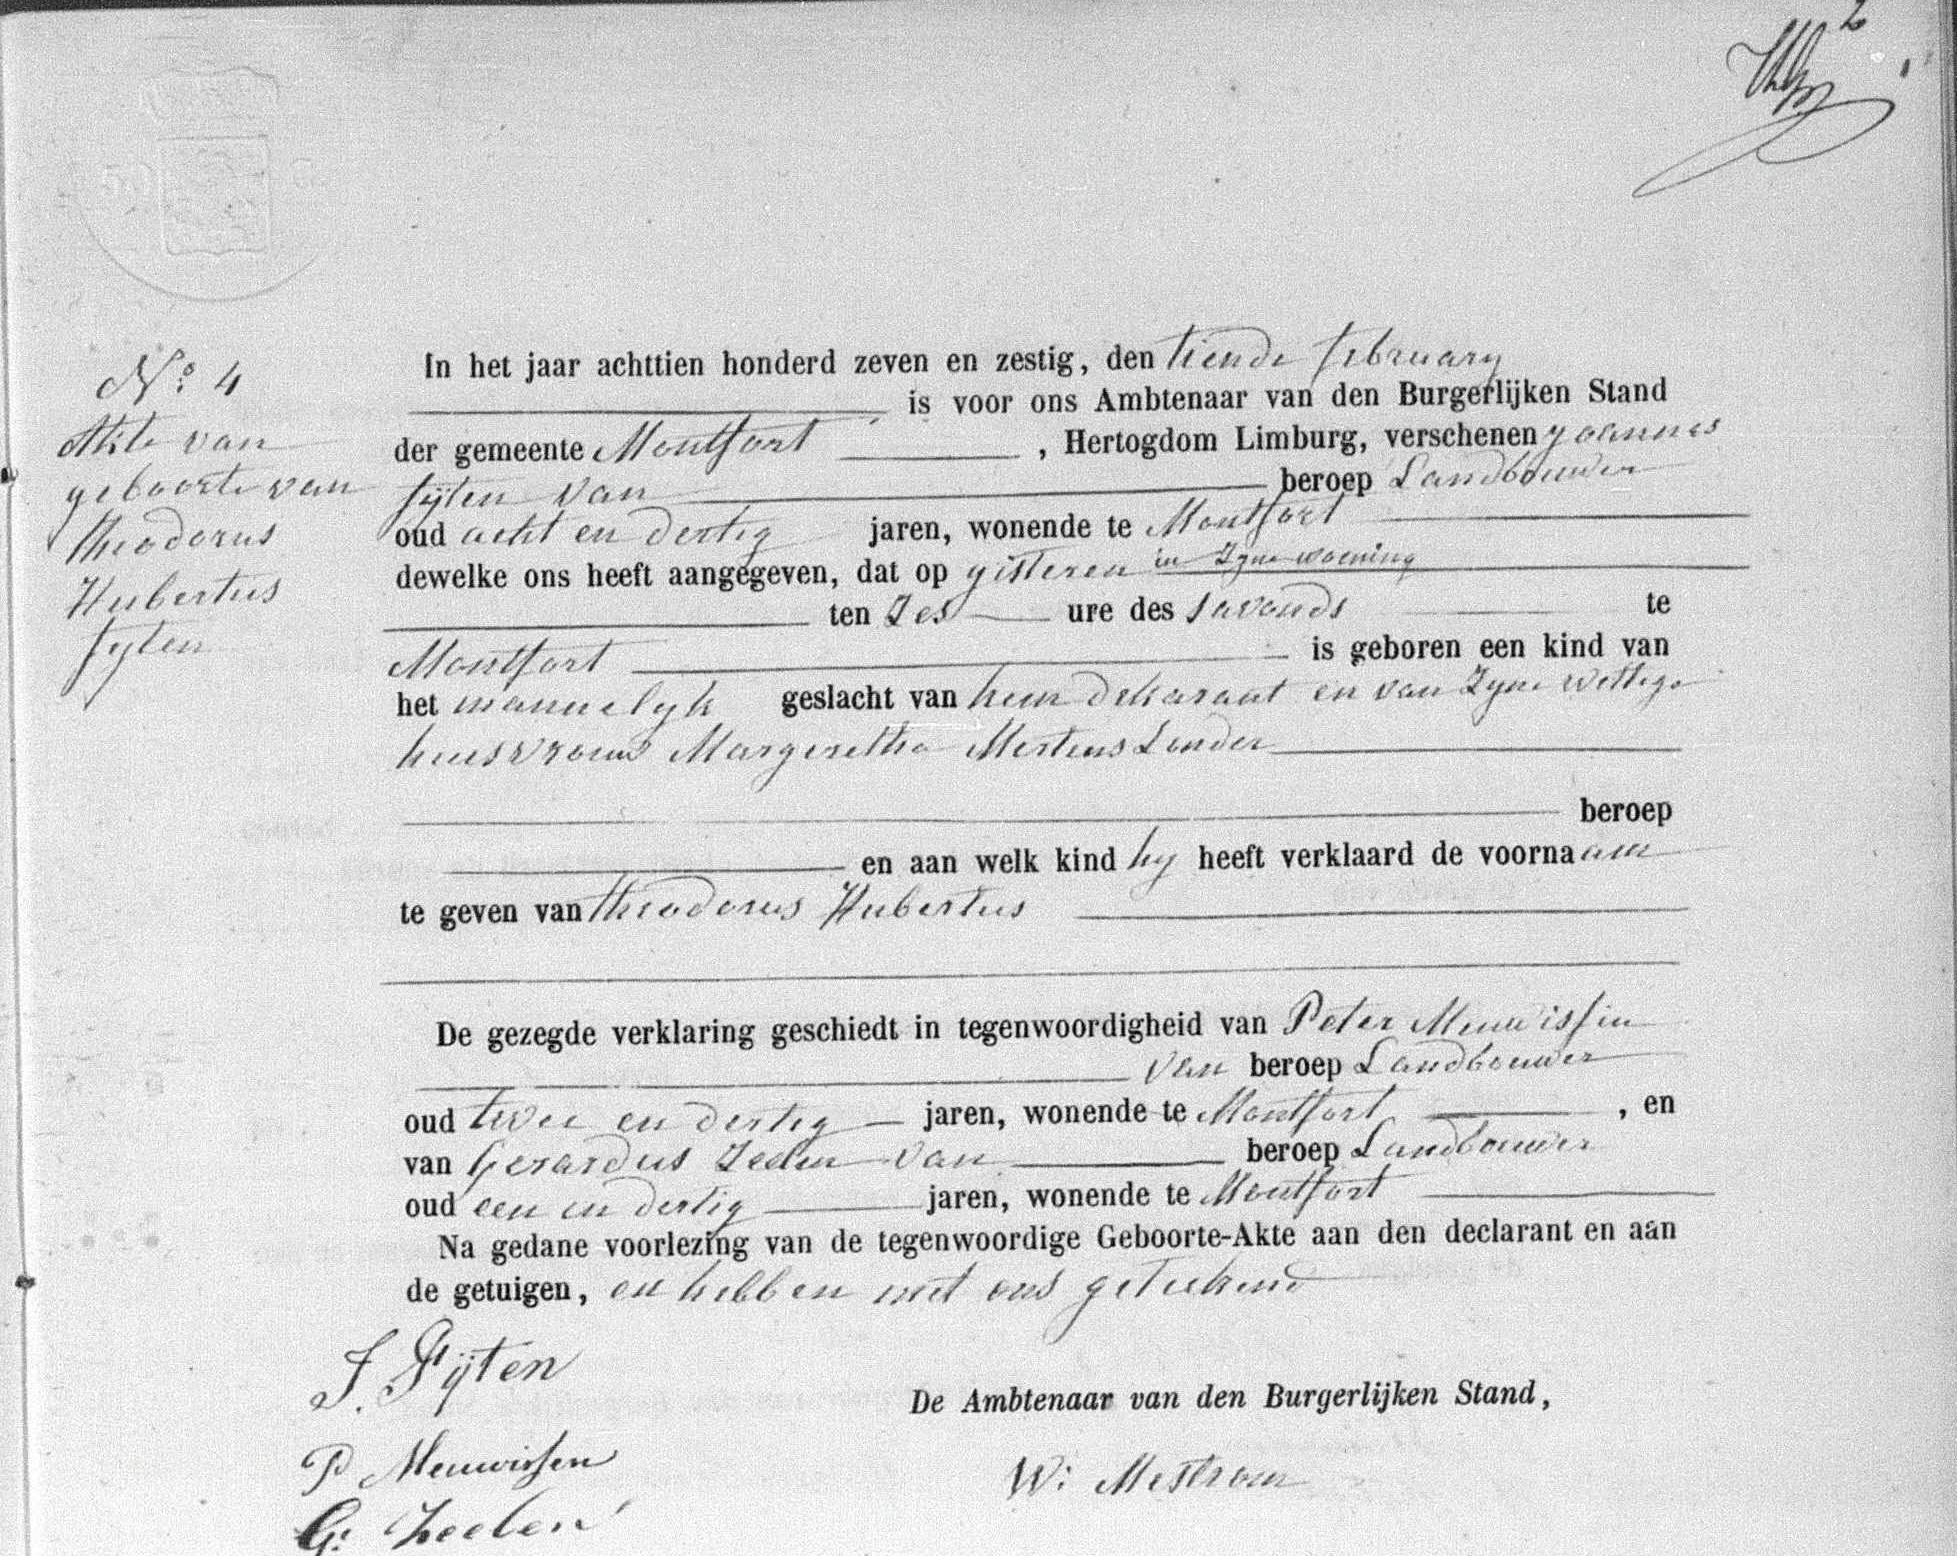 2
No: 4
Akte van
geboorte van
Theodorus
Hubertus
Fyten
In het jaar achttien honderd zeven en zestig, den tiende february
is voor ons Ambtenaar van den Burgerlijken Stand
der gemeente Montfort , Hertogdom Limburg, verschenen Joannes
Fijten van beroep Landbouwer
oud acht en dertig jaren, wonende te Montfort
dewelke ons heeft aangegeven, dat op gisteren in Zyne wooning
ten Zes ure des savonds te
Montfort is geboren een kind van
het mannelyk geslacht van hem dekarant en van Zyne wettige
huisvrouw Margeretha Mertens Zonder
beroep
en aan welk kind hy heeft verklaard de voornaam
te geven van Theodorus Hubertus
De gezegde verklaring geschiedt in tegenwoordigheid van Peter Meuwissen
van beroep Landbouwer
oud twee en dertig jaren, wonende te Montfort , en
van Gerardus Zeelen van beroep Landbouwer
oud een en dertig jaren, wonende te Montfort
Na gedane voorlezing van de tegenwoordige Geboorte-Akte aan den declarant en aan
de getuigen, en hebben met ons getekend
J. Fijten
De Ambtenaar van den Burgerlijken Stand,
P Meuwissen
W: Mestrom
G: Zeelen